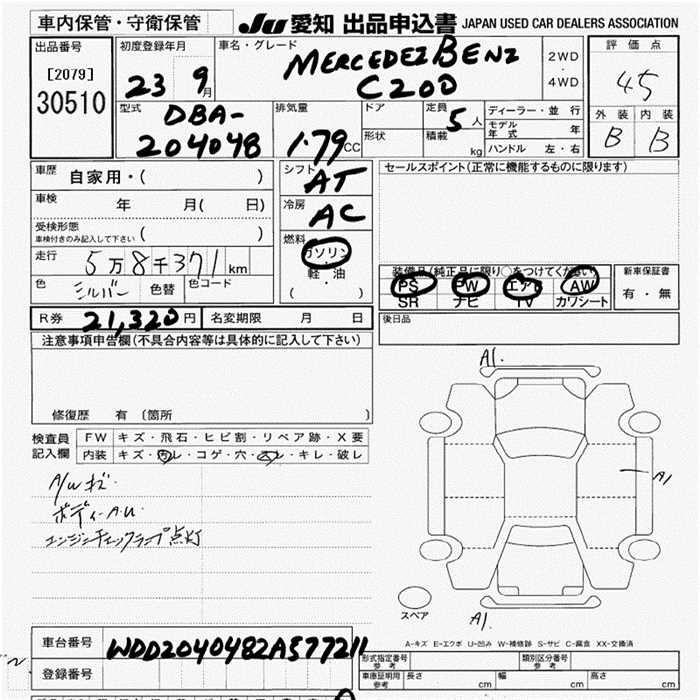 車内保管・守衛保管
JU 愛知 出品申込書 JAPAN USED CAR DEALERS ASSOCIATION
出品番号
[2079]
30510
初度登録年月
23 9月
車名・グレード
MERCEDEZ BENZ
C200
2WD
・
4WD
評価点
4.5
外装 内装
B B
型式
DBA-
204048
排気量
1.79cc
ドア
形状
定員
5人
積載
kg
ディーラー・並行
モデル年式 年
ハンドル 左・右
車歴
自家用・( )
車検
年 月( 日)
受検形態
車検付きのみ記入して下さい ( )
走行
5万8千371km
色
シルバー
色替
色コード
シフト
AT
冷房
AC
燃料
ガソリン
・
軽・油
( )
セールスポイント(正常に機能するものに限ります)
装備品(純正品に限り○をつけてください)
PS PW エアB AW
SR ナビ TV カワシート
新車保証書
有・無
R券 21,320円 名変期限 月 日
後日品
注意事項申告欄(不具合内容等は具体的に記入して下さい)
修復歴 有 〔箇所 〕
検査員
記入欄
FW キズ・飛石・ヒビ割・リペア跡・X要
内装 キズ・汚レ・コゲ・穴・スレ・キレ・破レ
A/Wキズ
ボディーA.U
エンジンチェックランプ点灯
A1.
A1
A1.
スペア
A-キズ E-エクボ U-凹み W-補修跡 S-サビ C-腐食 XX-交換済
車台番号
WDD2040482A577211
登録番号
形式指定番号
参考
類別区分番号
参考
車庫証明用
参考
長さ cm 幅 cm 高さ cm